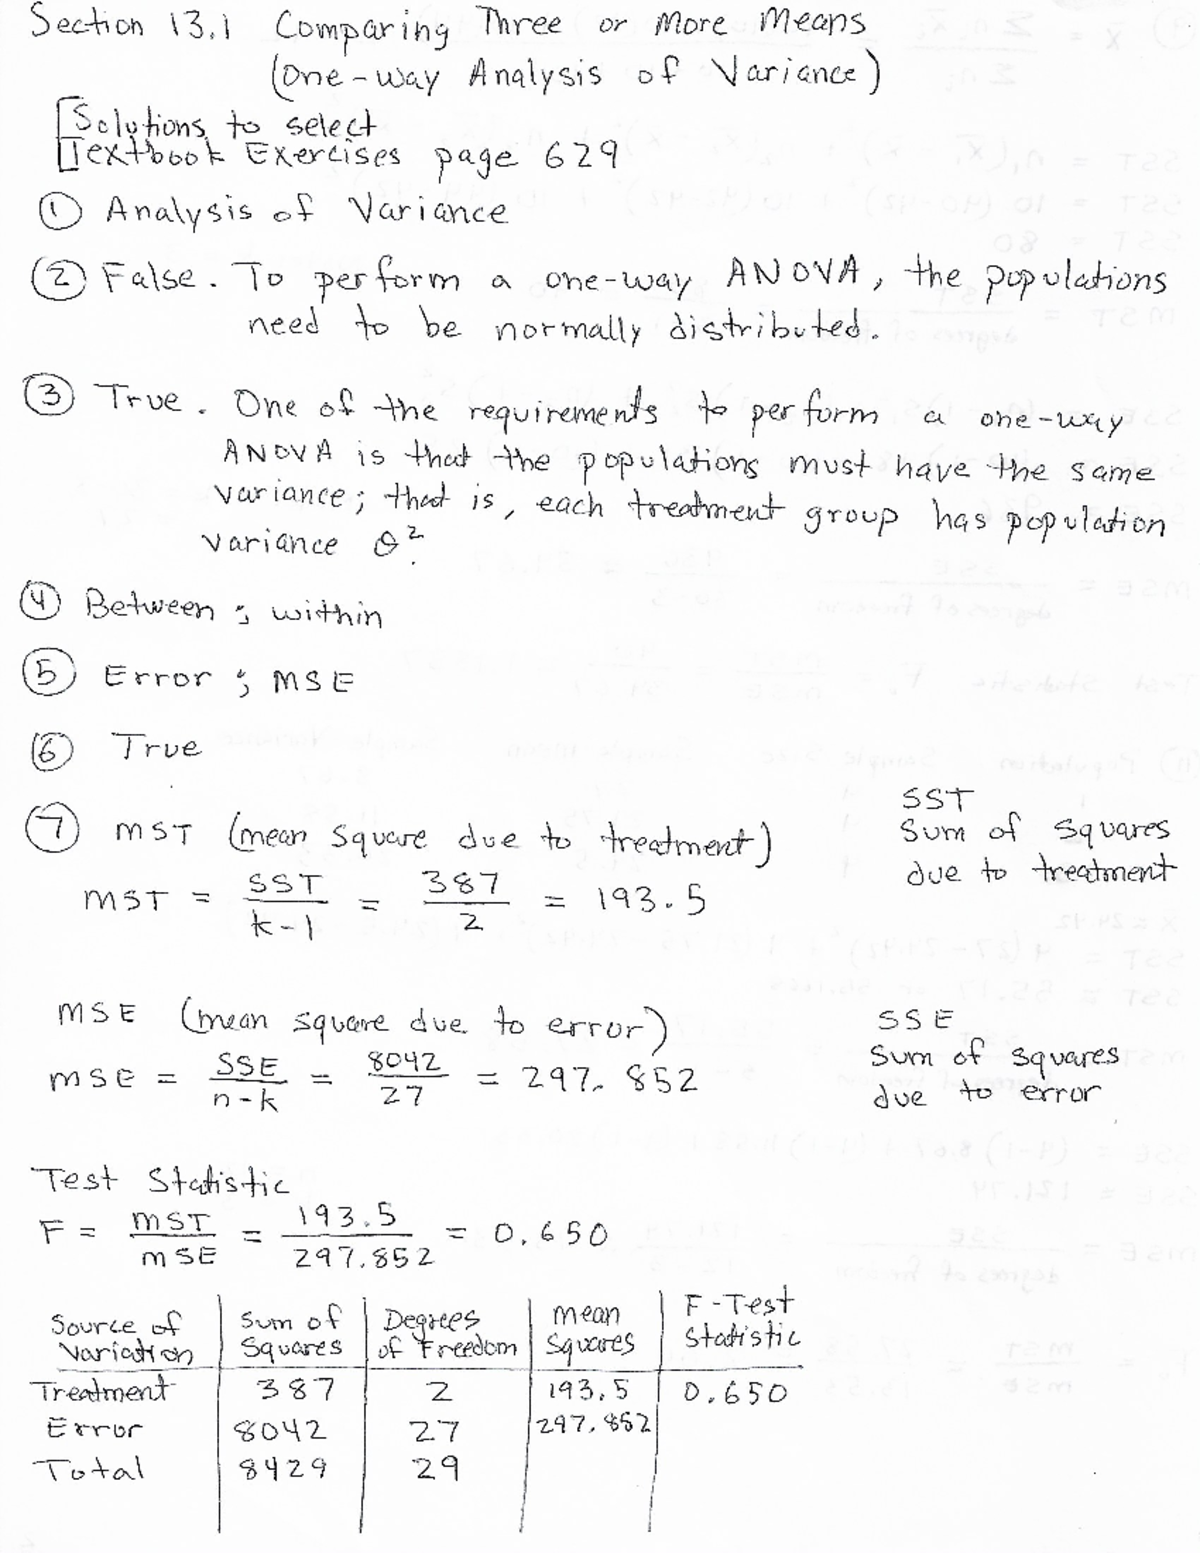 Section 13.1 Comparing Three or More Means
(One-way Analysis of Variance)
[Solutions to select
Textbook Exercises page 629
① Analysis of Variance
② False. To perform a one-way ANOVA, the populations
need to be normally distributed.
③ True. One of the requirements to perform a one-way
ANOVA is that the populations must have the same
variance; that is, each treatment group has population
variance σ².
④ Between ; within
⑤ Error ; MSE
⑥ True
⑦ MST (mean square due to treatment)
SST
Sum of squares
due to treatment
MST = SST/k-1 = 387/2 = 193.5
MSE (mean square due to error)
SSE
Sum of squares
due to error
MSE = SSE/n-k = 8042/27 = 297.852
Test Statistic
F = MST/MSE = 193.5/297.852 = 0.650
Source of Variation | Sum of Squares | Degrees of Freedom | Mean Squares | F-Test Statistic
Treatment | 387 | 2 | 193.5 | 0.650
Error | 8042 | 27 | 297.852
Total | 8429 | 29